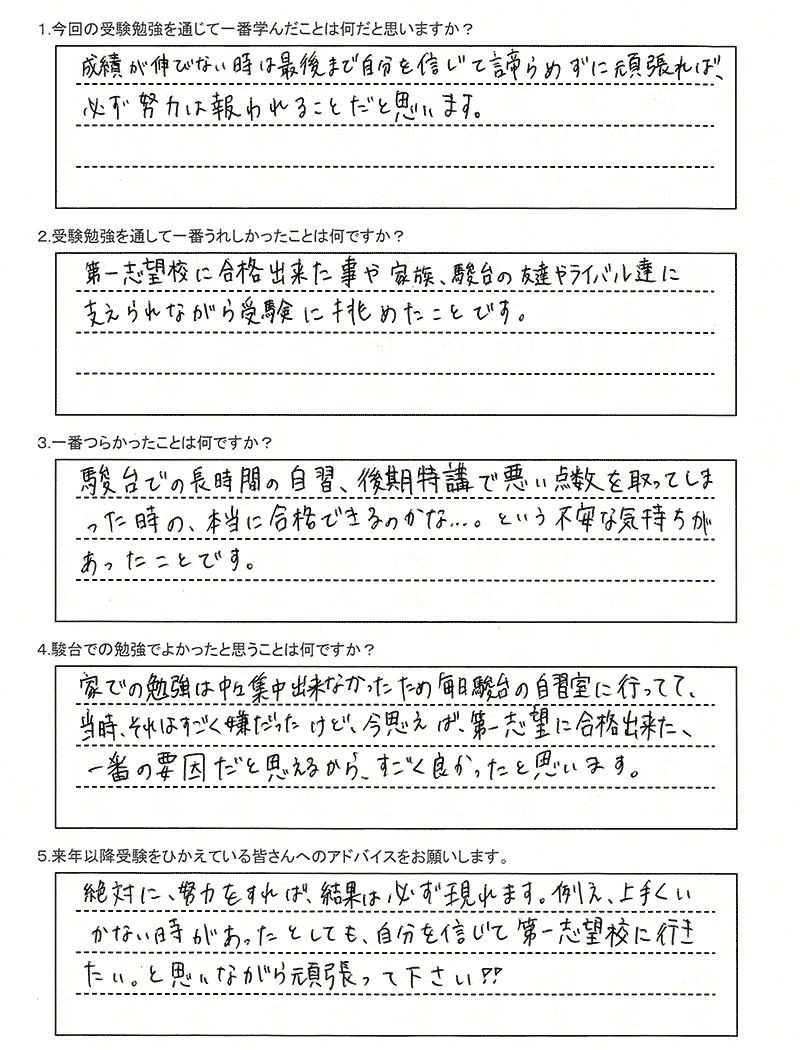 1.今回の受験勉強を通じて一番学んだことは何だと思いますか？
成績が伸びない時は最後まで自分を信じて諦らめずに頑張れば、
必ず努力は報われることだと思います。
2.受験勉強を通して一番うれしかったことは何ですか？
第一志望校に合格出来た事や家族、駿台の友達やライバル達に
支えられながら受験に挑めたことです。
3.一番つらかったことは何ですか？
駿台での長時間の自習、後期特講で悪い点数を取ってしま
った時の、本当に合格できるのかな...。という不安な気持ちが
あったことです。
4.駿台での勉強でよかったと思うことは何ですか？
家での勉強は中々集中出来なかったため毎日駿台の自習室に行ってて、
当時、それはすごく嫌だったけど、今思えば、第一志望に合格出来た、
一番の要因だと思えるから、すごく良かったと思います。
5.来年以降受験をひかえている皆さんへのアドバイスをお願いします。
絶対に、努力をすれば、結果は必ず現れます。例え、上手くい
かない時があったとしても、自分を信じて第一志望校に行き
たい。と思いながら頑張って下さい!!